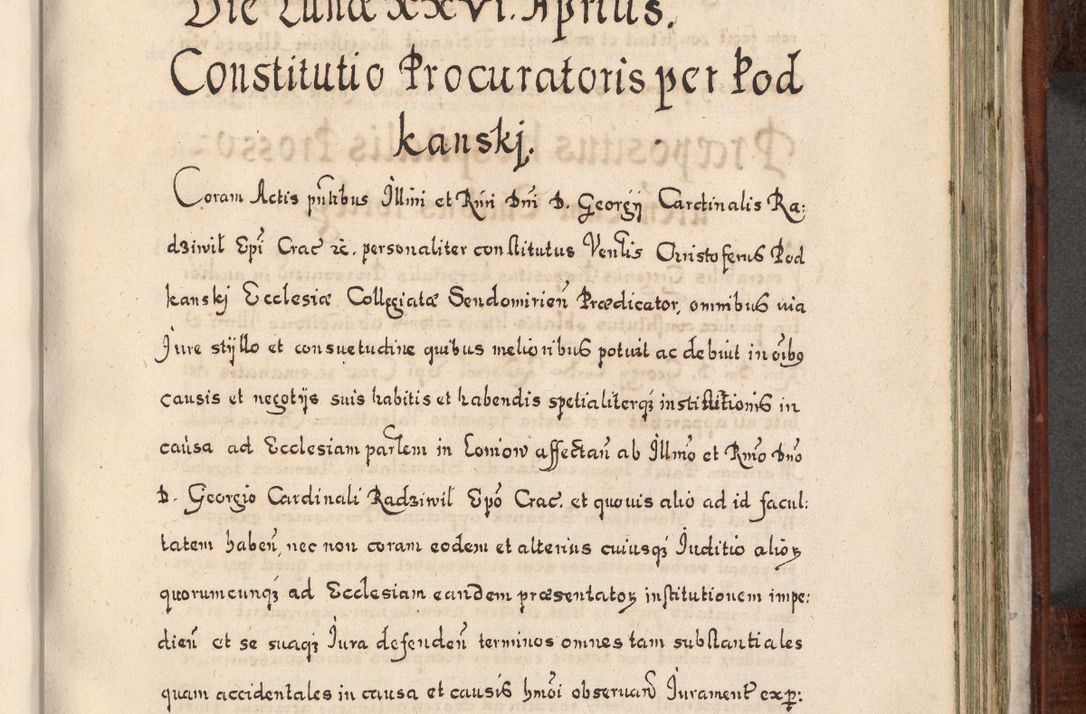 Die Lunæ XXVI. Aprilis.
Constitutio Procuratoris per Pod
kanskj.
Coram Actis pntibus Illmi et Rmi Dni D. Georgij Cardinalis Ra:
dziwil Epi Crac etc. personaliter constitutus Venlis Christoferus Pod
kanskj Ecclesiæ Collegiatæ Sendomirien Prædicator, omnibus via
Jure stijllo et consuetudine quibus melioribus potuit ac debuit in oibus
causis et negotijs suis habitis et habendis spetialiterq; institutionis in
causa ad Ecclesiam parlem in Loniow affectan ab Illmo et Rmo Dno
D. Georgio Cardinali Radziwil Epo Crac. et quovis alio ad id facul:
tatem haben, nec non coram eodem et alterius cuiusq; Juditio alioꝝ
quorumcunq; ad Ecclesiam eandem præsentatoꝝ institutionem impe:
dien et se suaq; Jura defenden terminos omnes tam substantiales
quam accidentales in causa et causis hmoi observan Jurament exp: